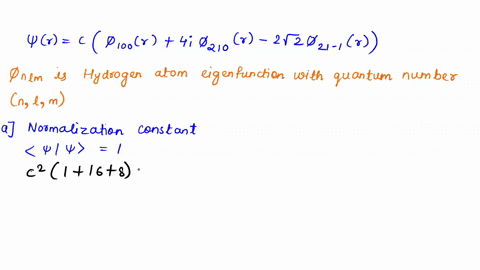 ψ(r) = c ( Ø₁₀₀(r) + 4i Ø₂₁₀(r) - 2√2 Ø₂₁₋₁(r) )
Øₙₗₘ is Hydrogen atom eigenfunction with quantum number
(n, l, m)
a] Normalization constant
< ψ | ψ > = 1
c² ( 1 + 16 + 8 )